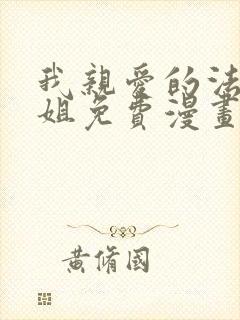 我親愛的法
姐免費漫畫
黃脩國